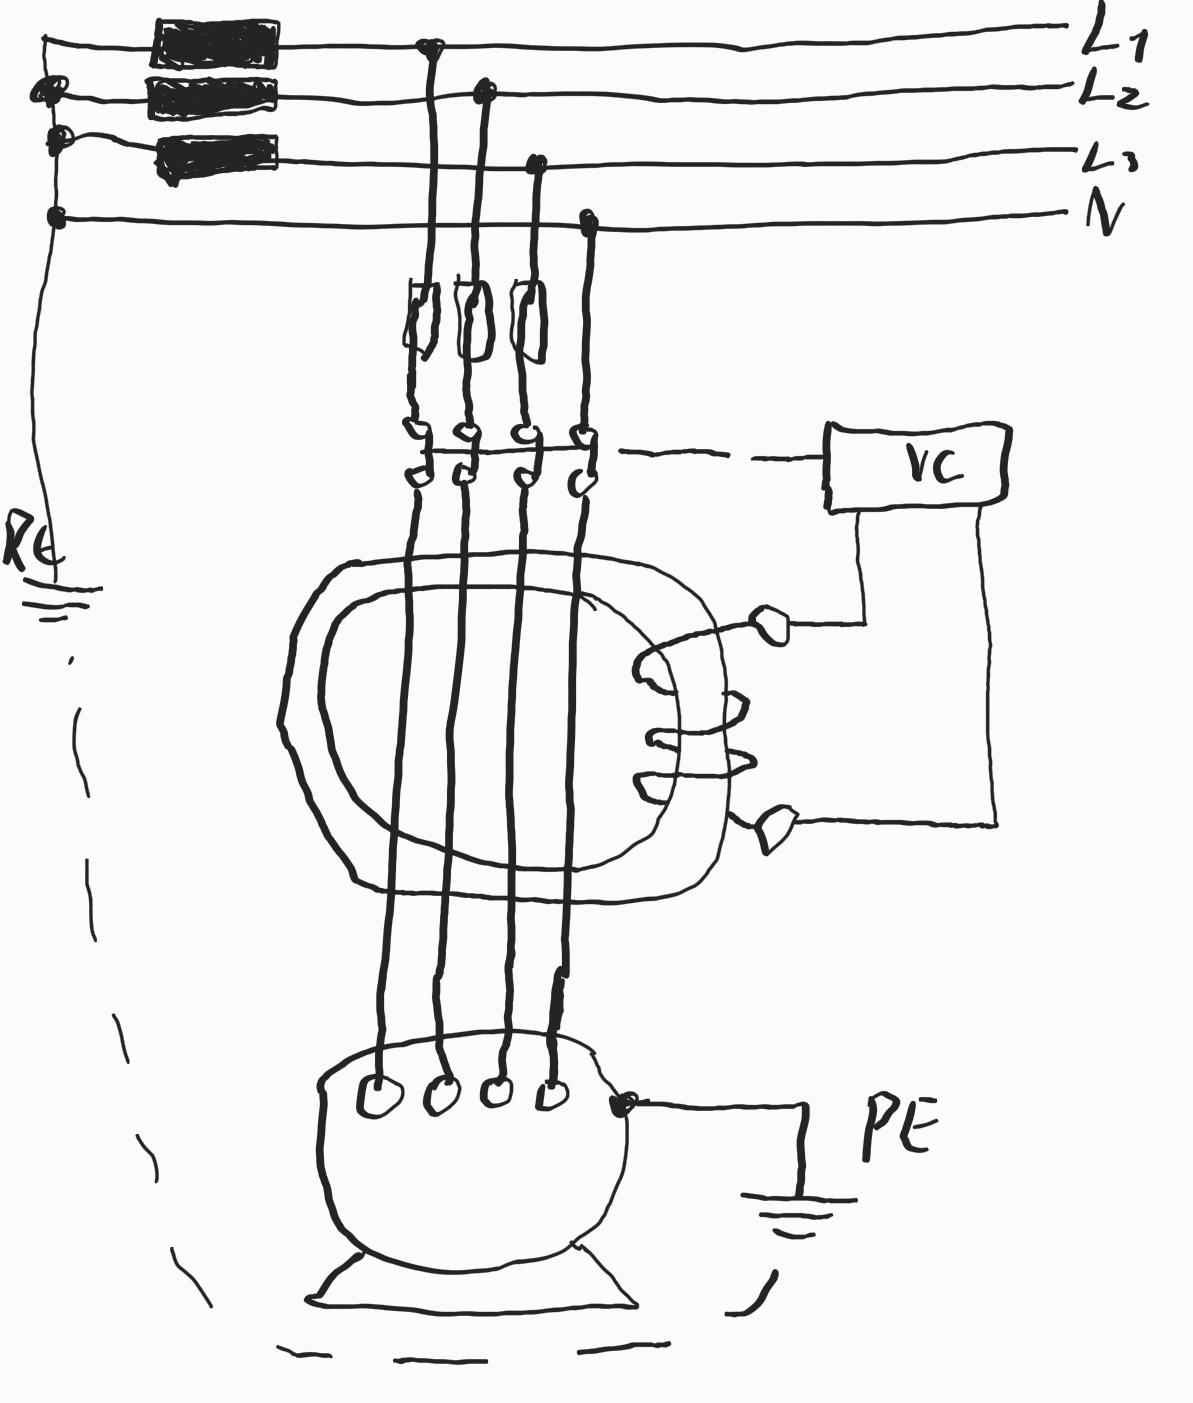 L1
L2
L3
N
VC
RE
PE